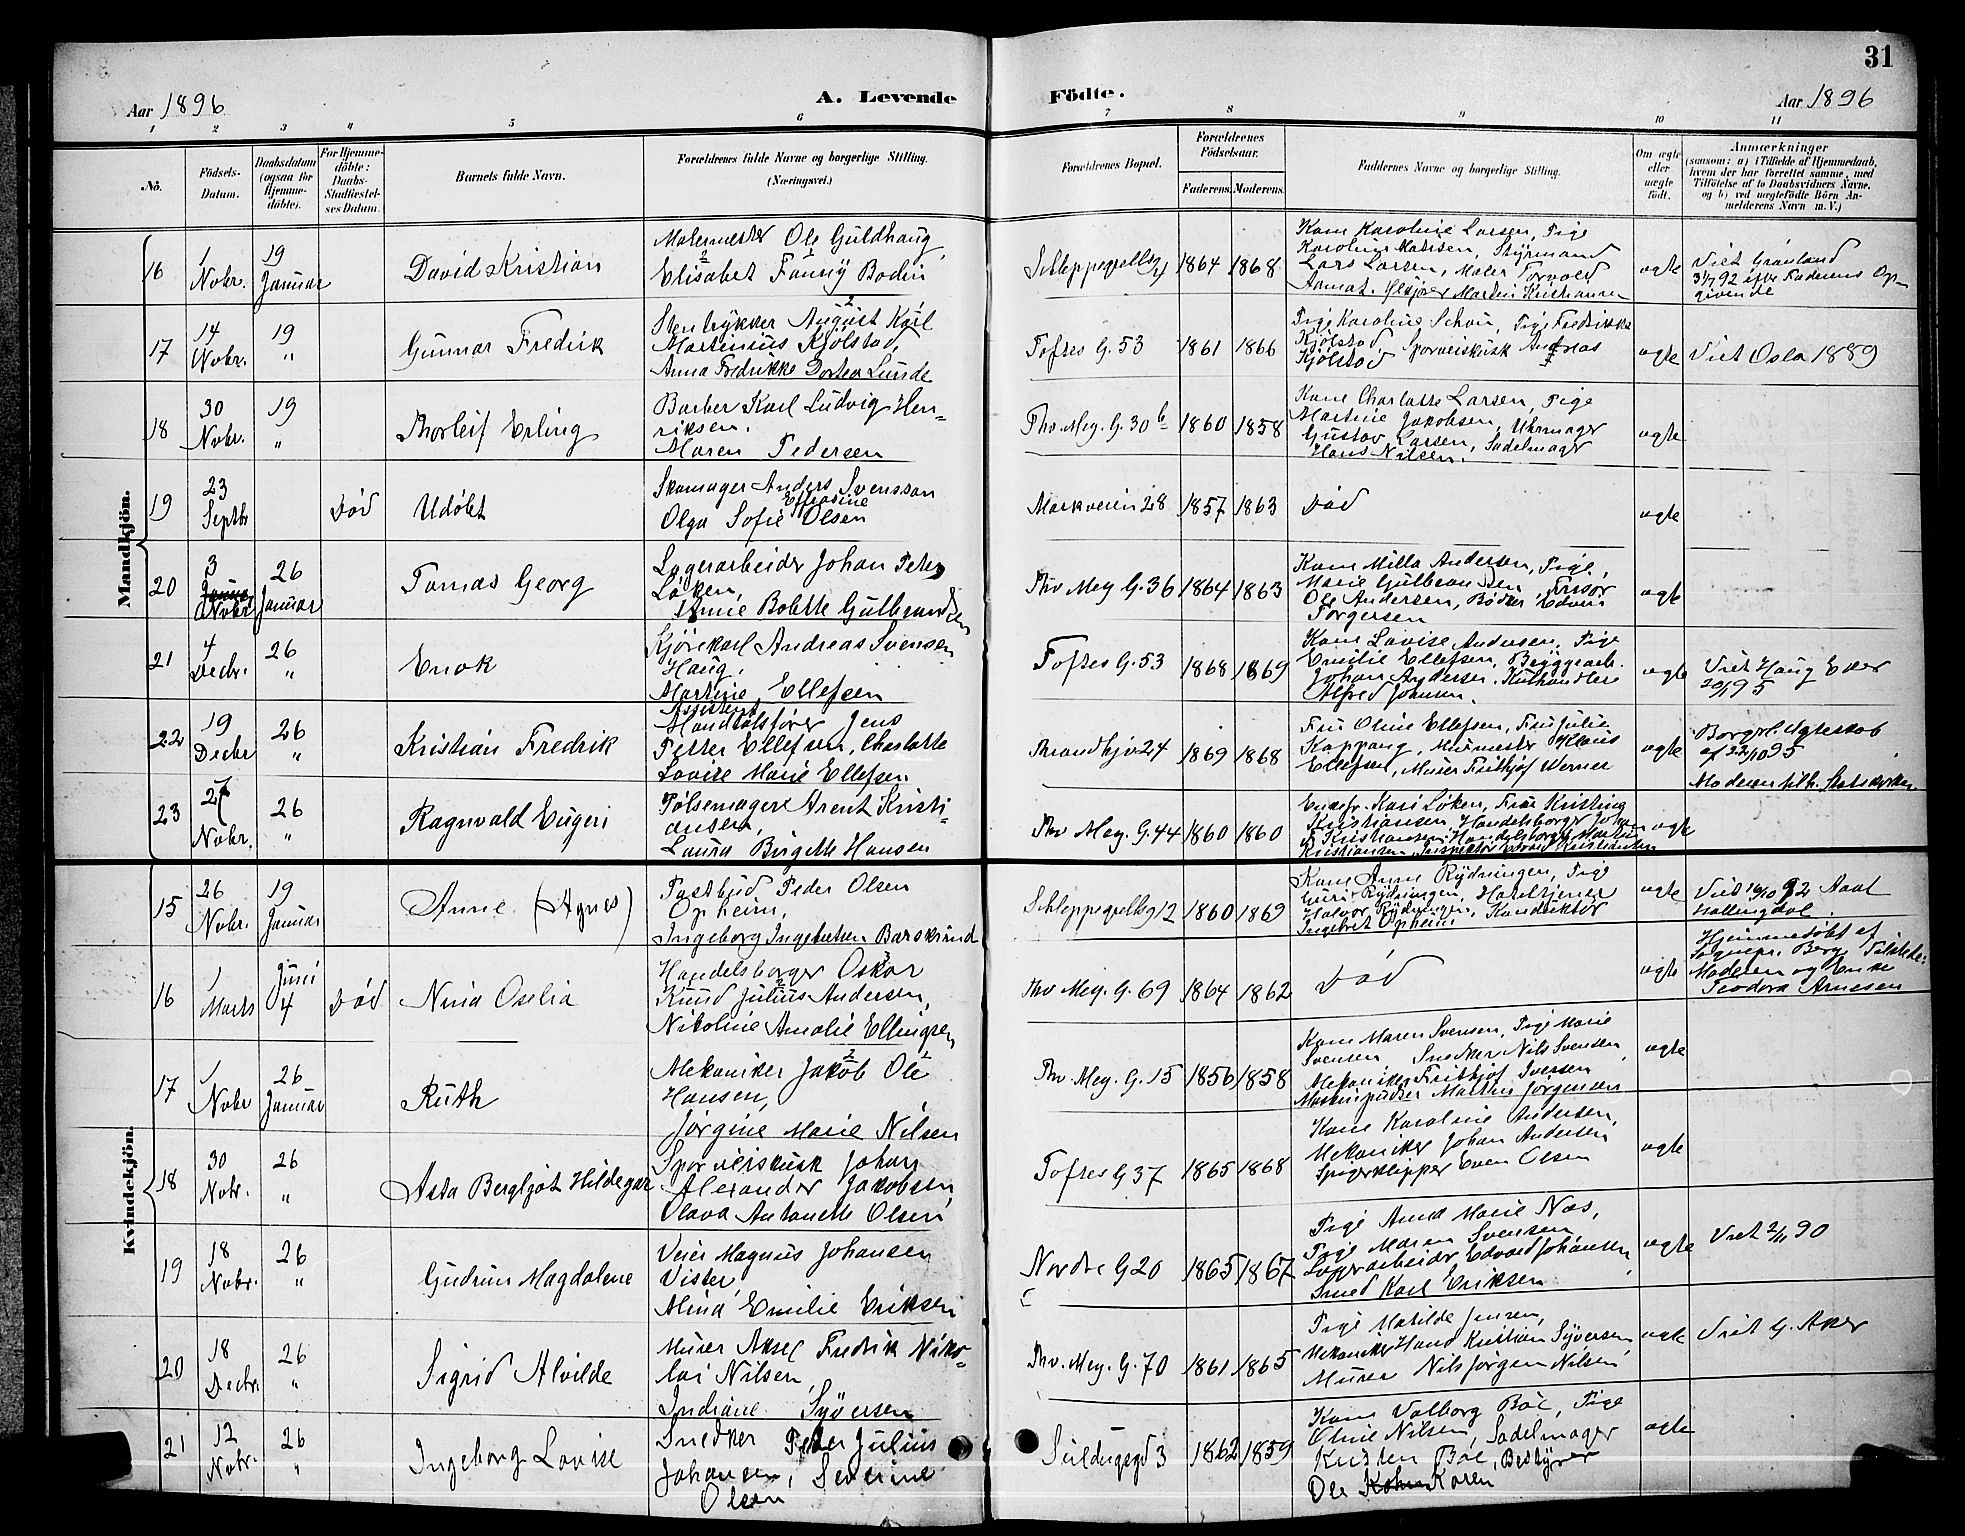 31
Aar 1896
A. Levende Födte.
Aar 1896
1 2 3 4 5 6 7 8 9 10 11
No.
Födsels-Datum.
Daabsdatum (ogsaa for Hjemmedöbte).
For Hjemmedöbte: Daabs-Stadfæstelses Datum.
Barnets fulde Navn.
Forældrenes fulde Navne og borgerlige Stilling.
(Næringsvei.)
Forældrenes Bopæl.
Forældrenes Födselsaar.
Faderens. Moderens.
Faddernes Navne og borgerlige Stilling.
Om ægte eller uægte født.
Anmærkninger
(saasom: a) i Tilfælde af Hjemmedaab,
hvem der har forrettet samme, med
Tilföielse af to Daabsvidners Navne,
og b) ved uægtefödte Börn An-
melderens Navn m. V.)
Mandkjön.
16
1 Nobr.
19 Januar
David Kristian
Malermester Ole Guldhaug,
Elisabet Fanny Bodin
Schleppegrellsg
1864 1868
Kone Karoline Larsen, Pige
Karoline Madsen, Styrmand
Lars Larsen, Maler Torvald
ægte
Viet Grønland
31/7 92 efter Faderens Op-
givende
17
14 Nobr.
19 "
Gunnar Fredrik
Stentrykker August Karl
Martinius Kjølstad,
Anna Fredrikke Dortea Lunde
Toftes G. 53
1861 1866
Pige Karoline Schou, Pige Fredrikke
Kjølstad Sporveiskusk Andreas
Kjølstad
ægte
Viet Oslo 1889
18
30 Nobr.
19 "
Thorleif Erling
Barber Karl Ludvig Hen-
riksen.
Maren Pedersen
Thv. Mey. G. 30 b
1860 1858
Kone Charlotte Larsen, Pige
Martine Jakobsen, Uhrmager
Gustav Larsen, Sadelmager
Hans Nilsen.
ægte
19
23 Septbr
Död
Udøbt
Skomager Anders Svensson
Efrosine
Olga Sofie Olsen
Markveien 28
1857 1863
Död
ægte
20
3 Nobr
26 Januar
Tomas Georg
Lagerarbeider Johan Peter
Løken,
Anne Bolette Gulbrandsen
Thv Mey G. 36
1864 1863
Kone Milla Andersen, Pige,
Marie Gulbrandsen, Frisör
Ole Andersen, Bødker Edvin
Torgersen
ægte
21
4 Decbr.
26 "
Enok
Kjørekarl Andreas Svensen
Haug,
Martine Ellefsen
Toftes G. 53
1868 1869
Kone Lovise Andersen, Pige
Emilie Ellefsen, Byggearb.
Johan Andersen, Kulhandler
Alfred Jansen
ægte
Viet Haug Eker
95
22
19 Decbr
26 "
Kristian Fredrik
Assistent
Mandtalsfører Jens
Petter Ellefsen, Charlotte
Lovise Marie Ellefsen
Trondhjv 24
1869 1868
Fru Oline Ellefsen, Fru Julie
Kappang, Murmester Klaus
Ellefsen, Murer Fritjof Werner
ægte
Borgrl. Ægteskab
af 22/10 95
Moderen tilh. Statskirken.
23
27 Nobr.
26 "
Ragnvald Eugen
Pølsemager Arent Kristi-
ansen,
Laura Birgitte Hansen
Thv Mey. G. 44
1860 1860
Enkefr. Kari Løken, Frue Kristine
Kristiansen, Handelsborger Johan
Kristiansen, Handelsborger Martin
Kristiansen, Inspektør Edvard Kristiansen
ægte
Kvindekjön.
15
26 Nobr.
19 Januar
Anne (Agnes)
Postbud Peder Olsen
Opheim,
Ingeborg Ingebretsen Barskrind
Schleppegrellsg 12
1860 1869
Kone Anne Rydningen, Pige
Guri Rydningen, Hoteltjener
Halvor Rydningen, Konduktør
Ingebret Opheim
ægte
Viet 16/10 92 Aaal
Hallingdal.
16
1 Marts
Juni 4
Död
Nina Oselia
Handelsborger Oskar
Knud Julius Andersen,
Nikoline Amalie Ellingsen
Thv Mey. G. 69
1864 1862
Död
ægte
Hjemmedøbt af
Sognepr. Berg Tilstede:
Moderen og Enke
Teodora Arnesen
17
1 Nobr
26 Januar
Ruth
Mekaniker Jakob Ole
Hansen,
Jörgine Marie Nilsen
Thv. Mey. G. 15
1856 1858
Kone Maren Svensen, Pige Marie
Svensen Snedker Nils Svendsen,
Mekaniker Fritjof Iversen
Maskinpudser Martin Jörgensen
ægte
18
30 Nobr.
26 "
Asta Bergljot Hildegar
Sporveiskusk Johan
Alexander Jakobsen
Olava Antonette Olsen
Toftes G 37
1865 1868
Kone Karoline Andersen,
Mekaniker Johan Andersen,
Spigerklipper Even Olsen
ægte
19
18 Nobr.
26 "
Gudrun Magdalene
Veier Magnus Johansen
Vister,
Alina Emilie Eriksen
Nordre G 20
1865 1867
Pige Anna Marie Næs,
Pige Maren Svensen
Lagerarbeider Edvard Johansen,
Smed Karl Eriksen
ægte
Viet 2/11 90
20
18 Decbr.
26 "
Sigrid Alvilde
Murer Aksel Fredrik Niko-
lai Nilsen,
Indiane Syversen
Thv. Mey. G. 70
1861 1865
Pige Matilde Jensen,
Mekaniker Hans Kristian Syversen
Murer Nils Jörgen Nilsen
ægte
Viet G. Aker
21
12 Nobr.
26 "
Ingeborg Lovise
Snedker Peder Julius
Johansen, Severine
Olsen
1862 1859
Kone Valborg Boe, Pige
Oline Nilsen, Sadelmager
Kristen Boe, Bestyrer
Ole Koren
ægte